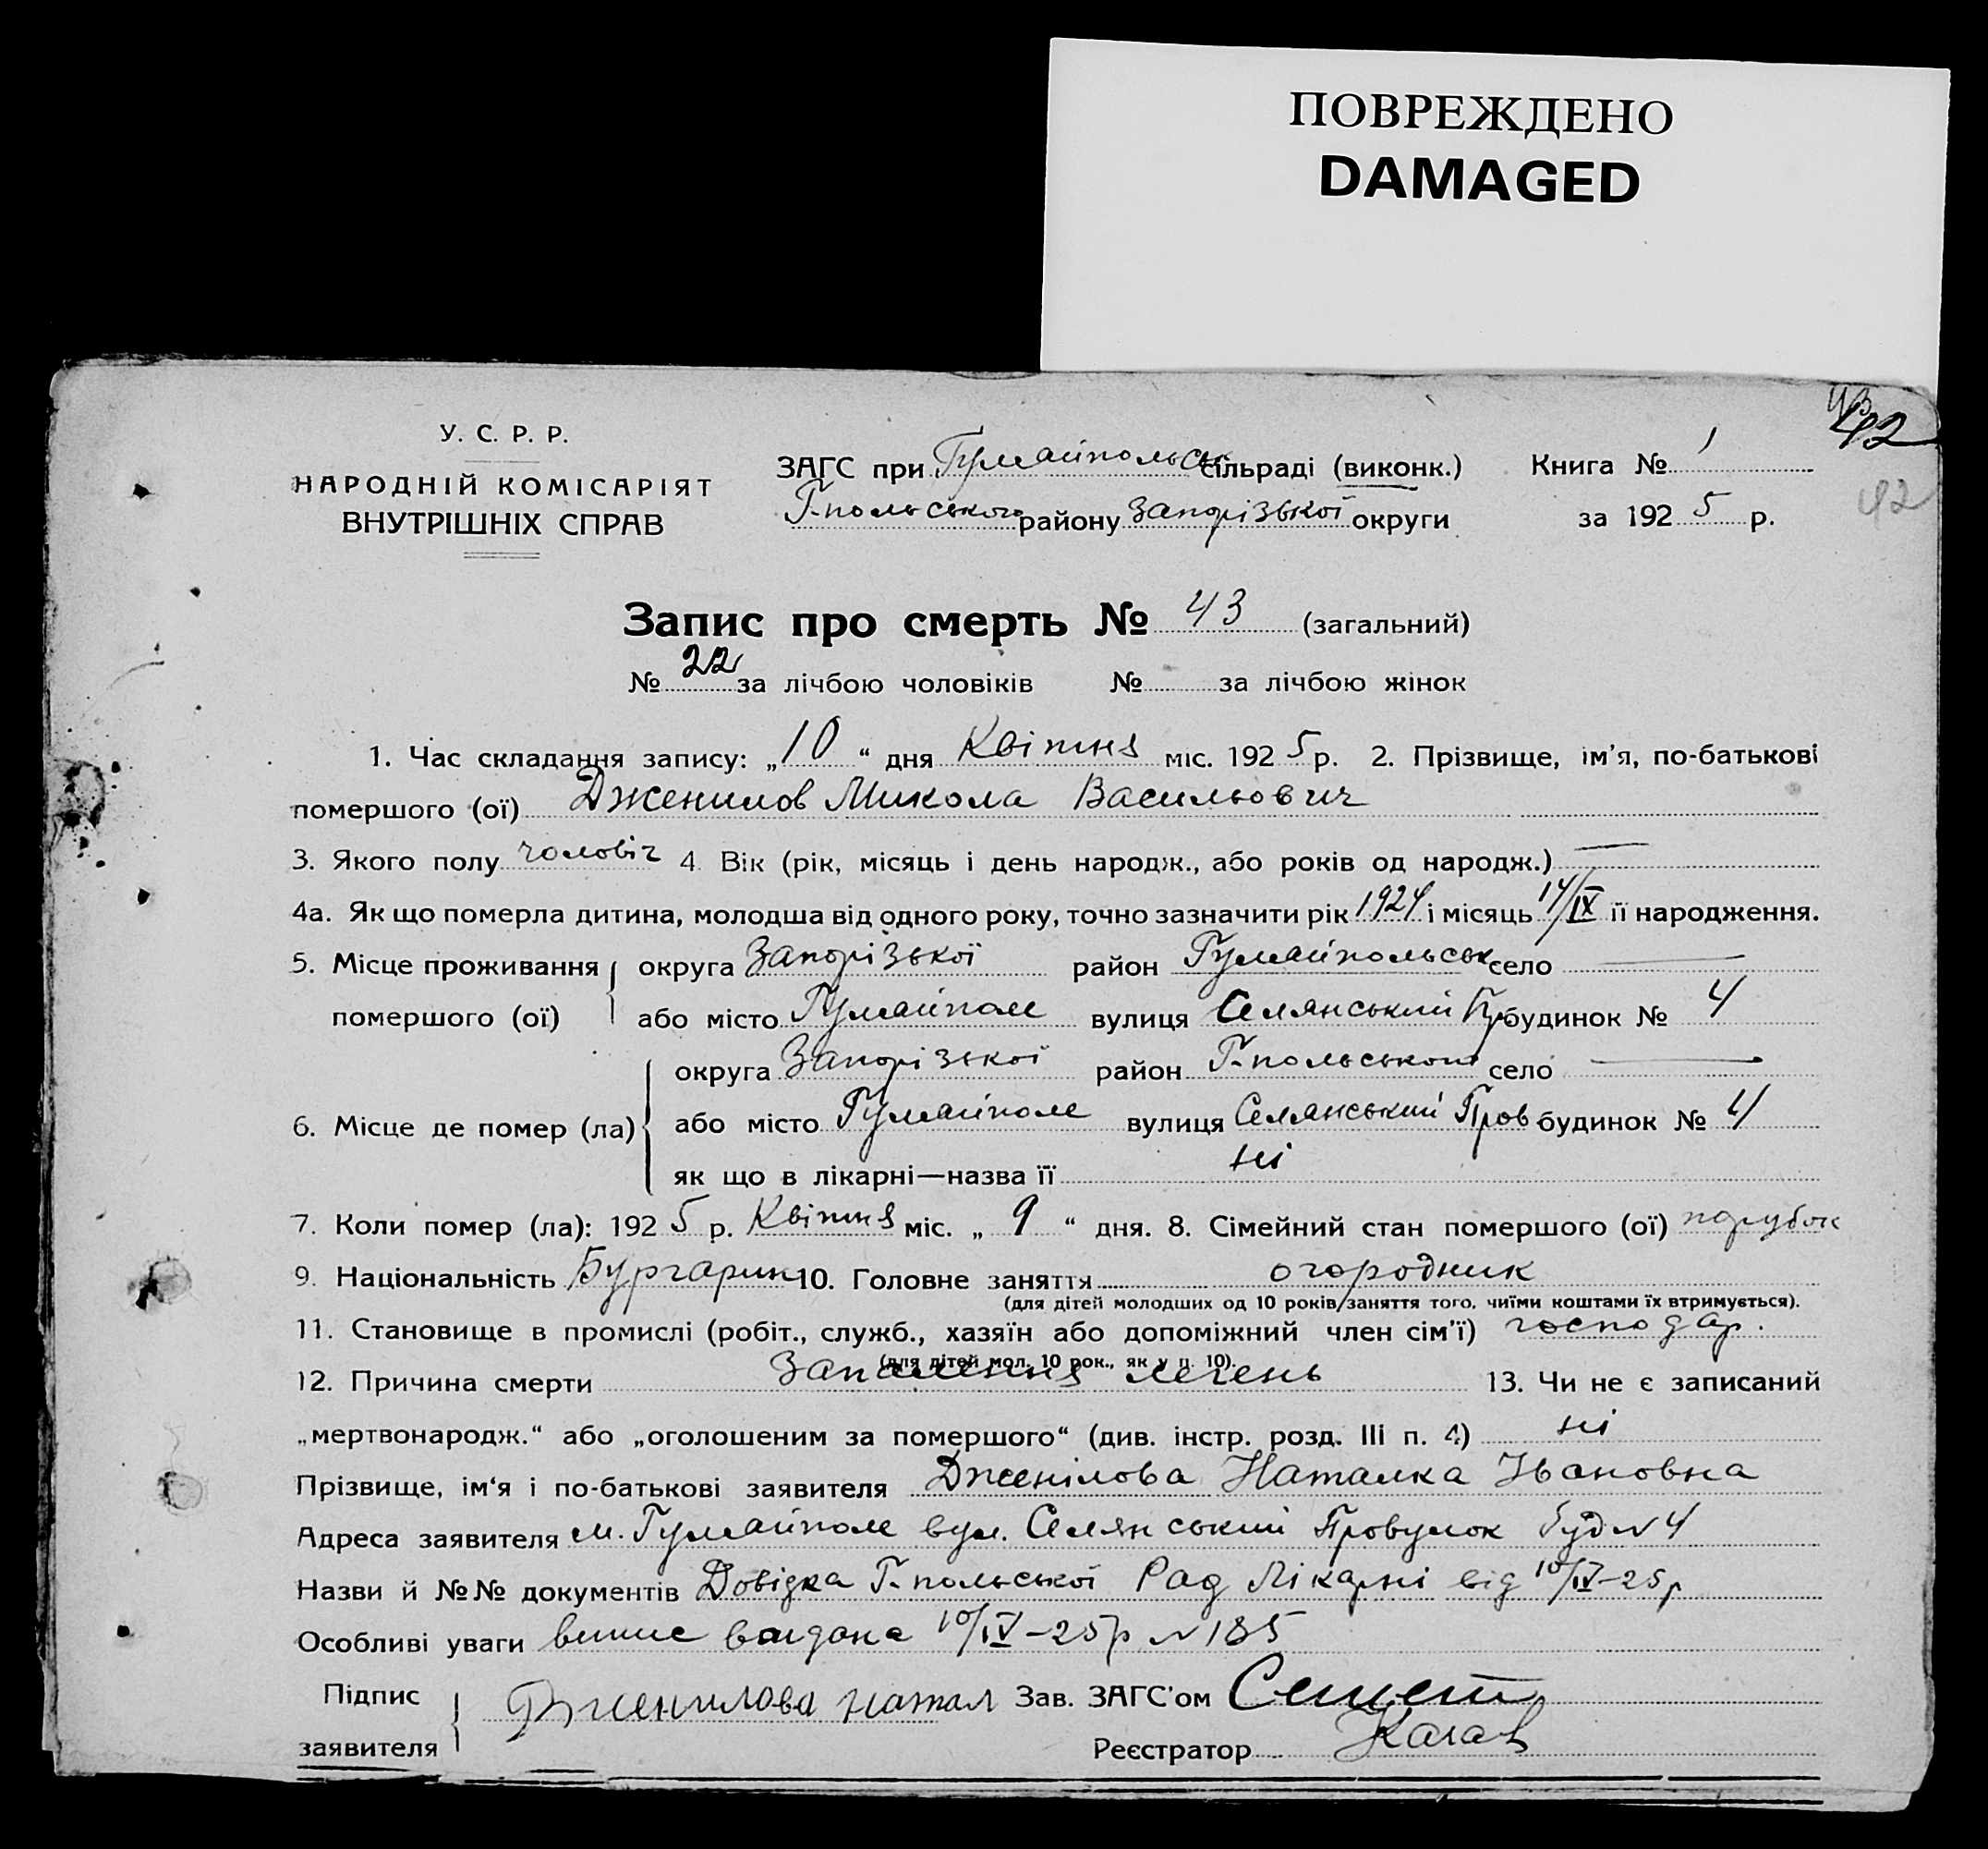 ПОВРЕЖДЕНО
DAMAGED
43
42
У. С. Р. Р.
НАРОДНІЙ КОМІСАРІЯТ
ВНУТРІШНІХ СПРАВ
ЗАГС при Гуляйпольськ сільраді (виконк.)
Г-польського району Запорізької округи
Книга № 1
за 1925 р.
42
Запис про смерть № 43 (загальний)
№ 22 за лічбою чоловіків № за лічбою жінок
1. Час складання запису: „10“ дня Квітня міс. 1925 р. 2. Прізвище, ім’я, по-батькові
помершого (ої) Дженилов Микола Васильович
3. Якого полу чоловіч 4. Вік (рік, місяць і день народж., або років од народж.) —
4а. Як що померла дитина, молодша від одного року, точно зазначити рік 1924 і місяць 14/IX її народження.
5. Місце проживання округа Запорізької район Гуляйпольськ село —
помершого (ої) або місто Гуляйполе вулиця Селянський Пр будинок № 4
округа Запорізької район Г-польського село —
6. Місце де помер (ла) або місто Гуляйполе вулиця Селянський Пров будинок № 4
як що в лікарні—назва її ні
7. Коли помер (ла): 1925 р. Квітня міс. „9“ дня. 8. Сімейний стан помершого (ої) парубок
9. Національність Бургарин 10. Головне заняття огородник
(для дітей молодших од 10 років заняття того, чиїми коштами їх втримується).
11. Становище в промислі (робіт., служб., хазяїн або допоміжний член сім’ї) господар.
(для дітей мол. 10 рок., як у п. 10).
12. Причина смерти Запалення легень 13. Чи не є записаний
„мертвонародж.“ або „оголошеним за помершого“ (див. інстр. розд. III п. 4) ні
Прізвище, ім‘я і по-батькові заявителя Дженілова Наталка Івановна
Адреса заявителя м. Гуляйполе вул. Селянський Провулок буд № 4
Назви й №№ документів Довідка Г-польської Рад Лікарні від 10/IV-25р
Особливі уваги випис видана 10/IV-25р № 185
Підпис
заявителя Дженилова Натал
Зав. ЗАГС’ом
Реєстратор